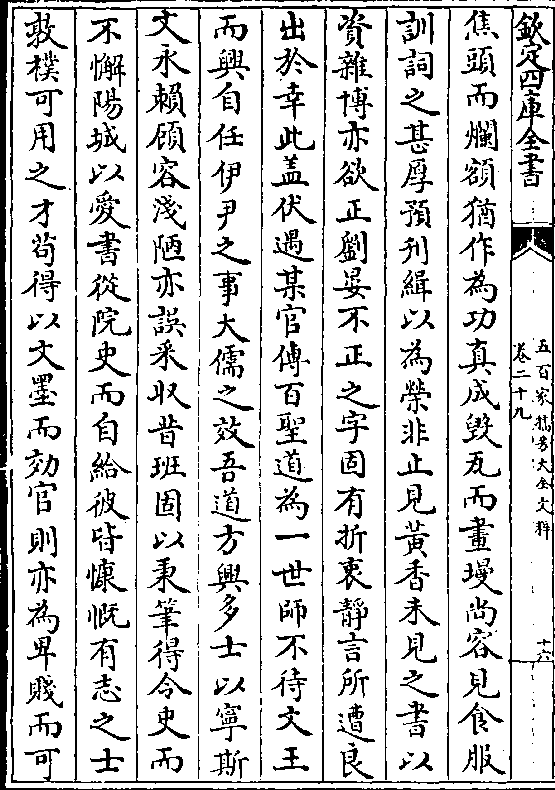 欽定四庫全書
五百家播芳大全文粹
卷二十九
十六
焦頭而爛額猶作為功真成毀瓦而畫墁尚容見食服
訓詞之甚厚預刋緝以為榮非止見黃香未見之書以
資雜博亦欲正劉晏不正之字固有折衷靜言所遭良
出於幸此盖伏遇某官傳百聖道為一世師不待文王
而興自任伊尹之事大儒之效吾道方興多士以寧斯
文永賴顧容淺陋亦誤采收昔班固以秉筆得令史而
不懈陽城以愛書從院史而自給彼皆慷慨有志之士
敦樸可用之才苟得以文墨而効官則亦為卑賤而可